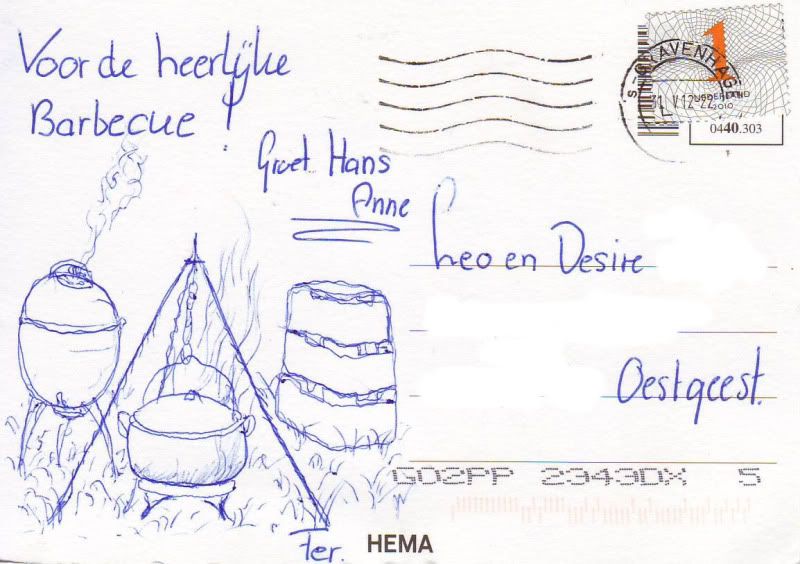 Voor de heerlijke
Barbecue !
Groet Hans
Anne
Leo en Desire
Oestgeest.
1
NEDERLAND
2010
0440.303
GO2PP 2343DX 5
Ter.
HEMA